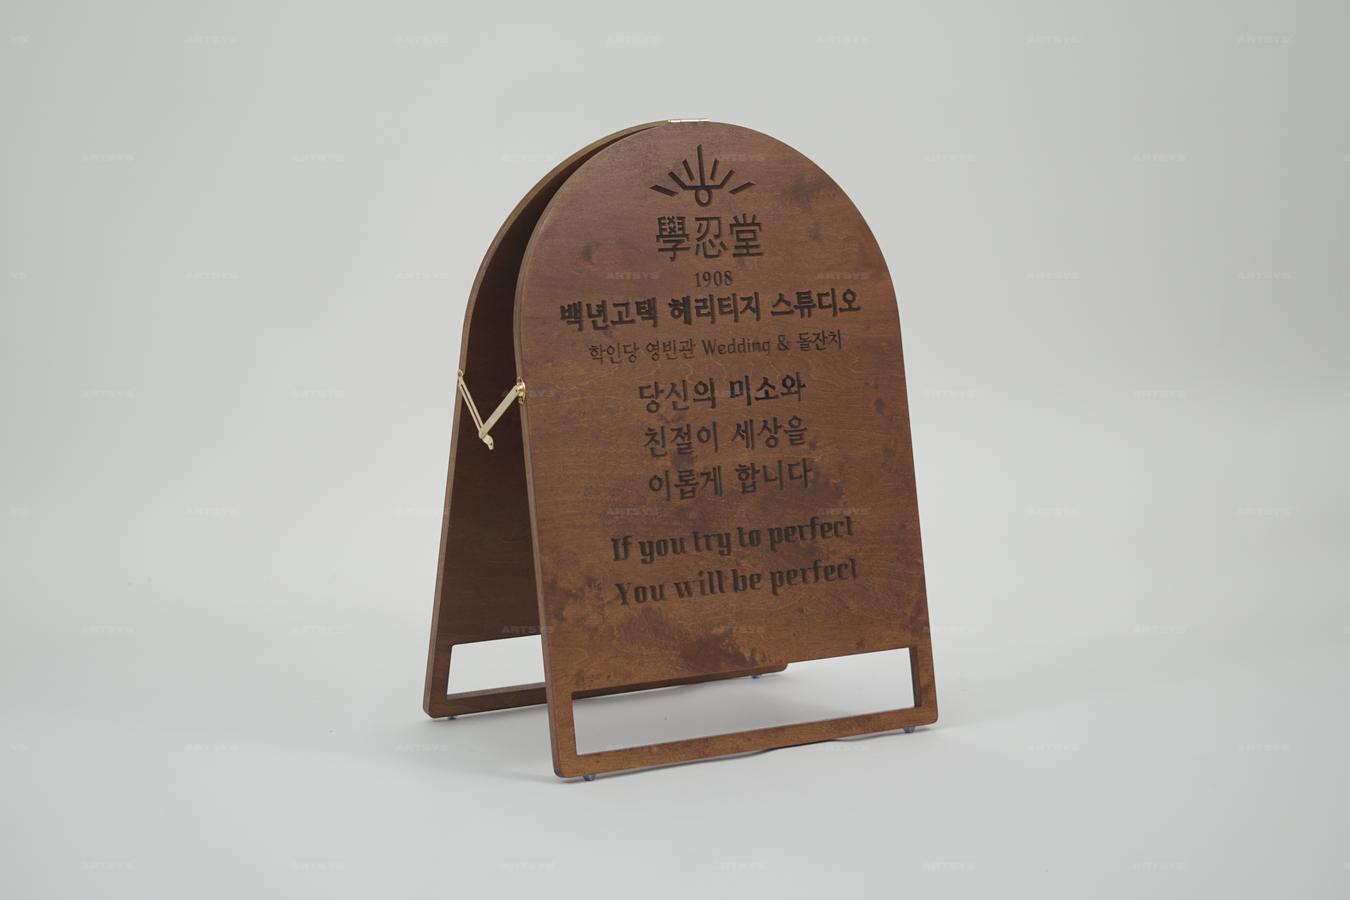 學忍堂
1908
백년고택 헤리티지 스튜디오
학인당 영빈관 Wedding & 돌잔치
당신의 미소와
친절이 세상을
이롭게 합니다
If you try to perfect
You will be perfect
ARTSYS